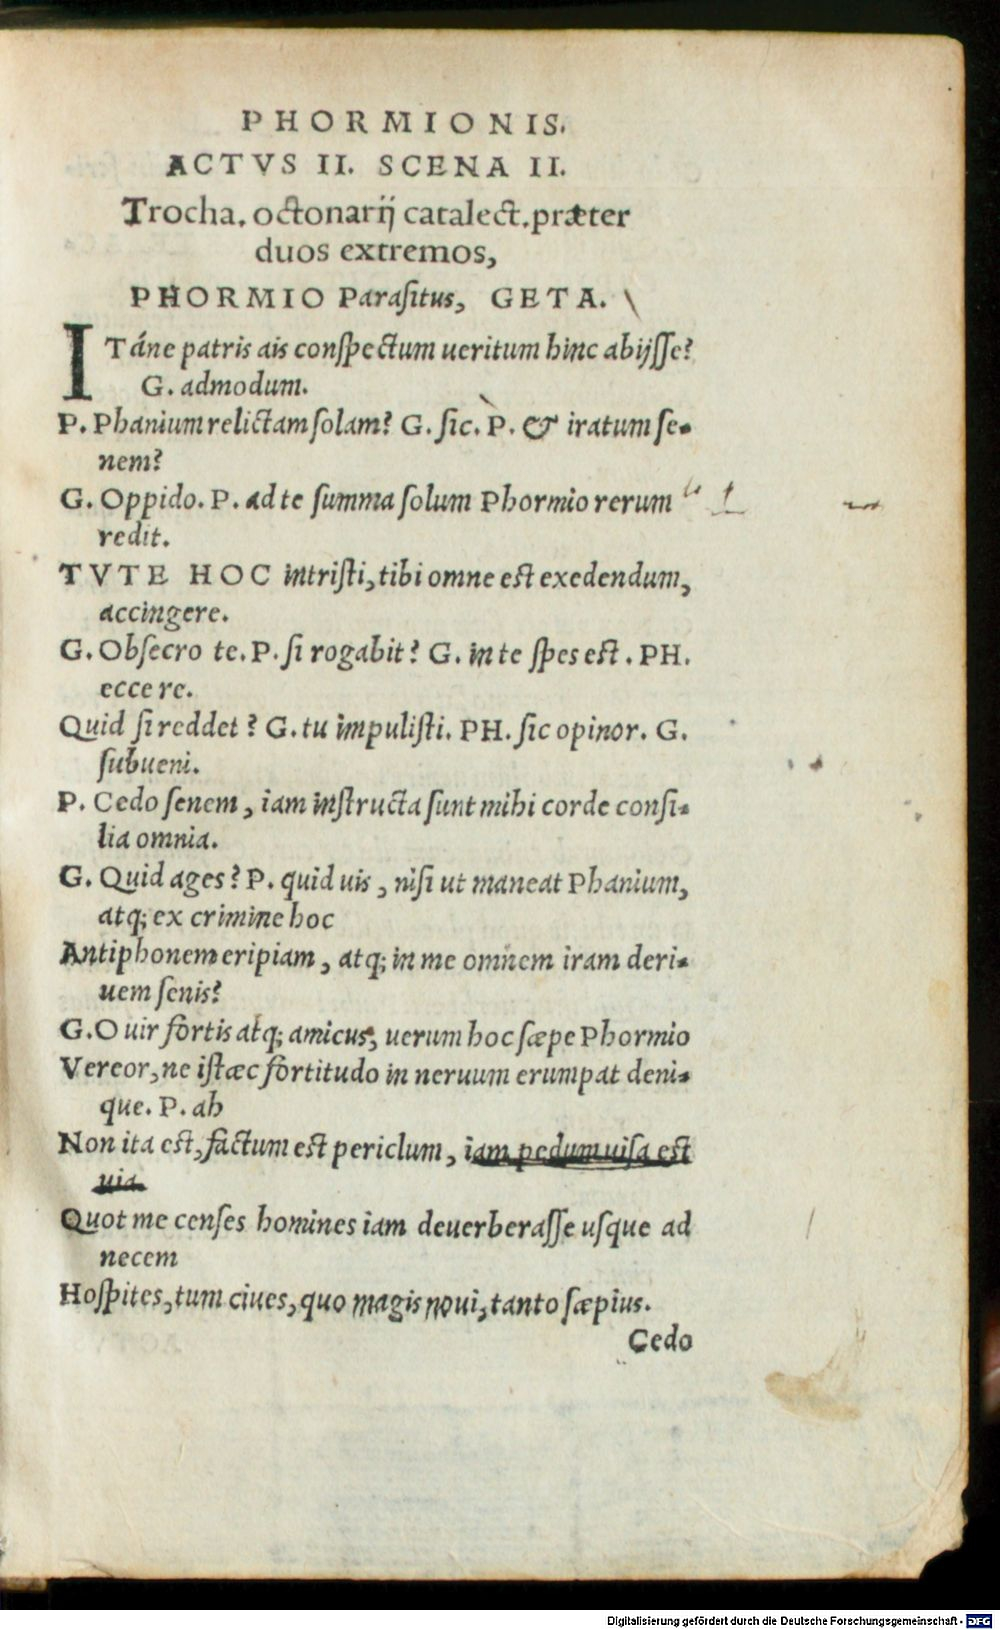 PHORMIONIS.
ACTVS II. SCENA II.
Trocha. octonarij catalect. præter
duos extremos,
PHORMIO Parasitus, GETA.
ITáne patris ais conspectum ueritum hinc abijsse?
G. admodum.
P. Phanium relictam solam? G. sic. P. & iratum se-
nem?
G. Oppido. P. ad te summa solum Phormio rerum
redit.
TVTE HOC intristi, tibi omne est exedendum,
accingere.
G. Obsecro te. P. si rogabit? G. in te spes est. PH.
eccere.
Quid si reddet? G. tu impulisti. PH. sic opinor. G.
subueni.
P. Cedo senem, iam instructa sunt mihi corde consi-
lia omnia.
G. Quid ages? P. quid uis, nisi ut maneat Phanium,
atq; ex crimine hoc
Antiphonem eripiam, atq; in me omnem iram deri-
uem senis?
G. O uir fortis atq; amicus, uerum hoc sæpe Phormio
Vereor, ne istæc fortitudo in neruum erumpat deni-
que. P. ah
Non ita est, factum est periclum, iam pedum uisa est
uia.
Quot me censes homines iam deuerberasse usque ad
necem
Hospites, tum ciues, quo magis noui, tanto sæpius.
Cedo
Digitalisierung gefördert durch die Deutsche Forschungsgemeinschaft - DFG